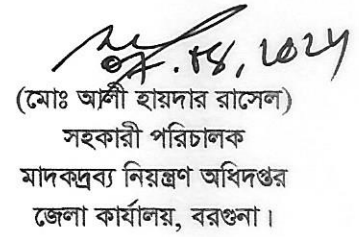 (মোঃ আলী হায়দার রাসেল)
সহকারী পরিচালক
মাদকদ্রব্য নিয়ন্ত্রণ অধিদপ্তর
জেলা কার্যালয়, বরগুনা।